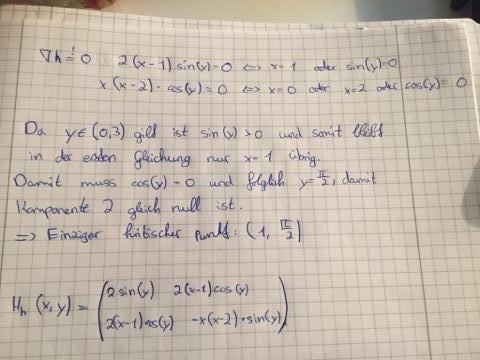 ∇h =! 0   2(x-1) sin(y) = 0 ⇔ x = 1 oder sin(y)=0
x(x-2)·cos(y) = 0 ⇔ x=0 oder x=2 oder cos(y) = 0
Da y∈(0,3) gilt ist sin(y) > 0 und somit bleibt
in der ersten Gleichung nur x=1 übrig.
Damit muss cos(y) = 0 und folglich y=π/2, damit
Komponente 2 gleich null ist.
⇒ Einziger kritischer Punkt: (1, π/2)
H_h (x,y) = ( 2·sin(y)   2(x-1)cos(y)
2(x-1)cos(y)   -x(x-2)·sin(y) )